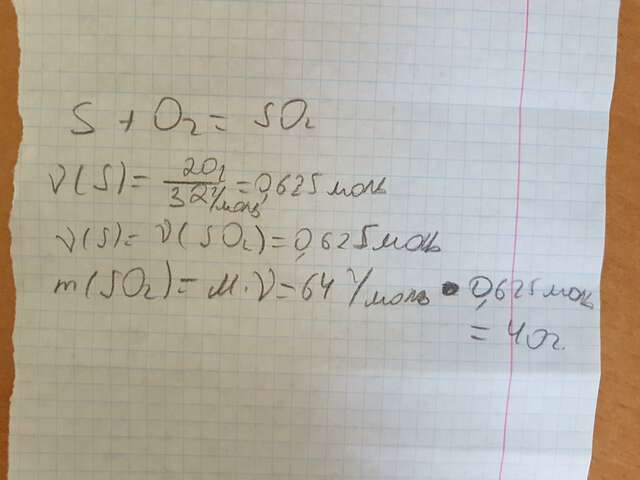 S + O₂ = SO₂
ν(S) = 20г / 32 г/моль = 0,625 моль
ν(S) = ν(SO₂) = 0,625 моль
m(SO₂) = M · ν = 64 г/моль · 0,625 моль
= 40г